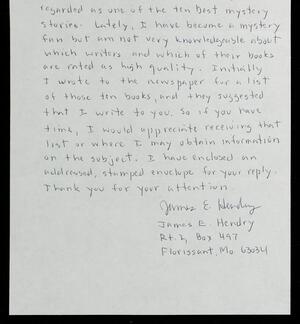 regarded as one of the ten best mystery
stories. Lately, I have become a mystery
fan but am not very knowledgeable about
which writers and which of their books
are rated as high quality. Initially
I wrote to the newspaper for a list
of those ten books, and they suggested
that I write to you. So if you have
time, I would appreciate receiving that
list or where I may obtain information
on the subject. I have enclosed an
addressed, stamped envelope for your reply.
Thank you for your attention.
James E. Hendry
James E. Hendry
Rt. 2, Box 497
Florissant, Mo. 63034